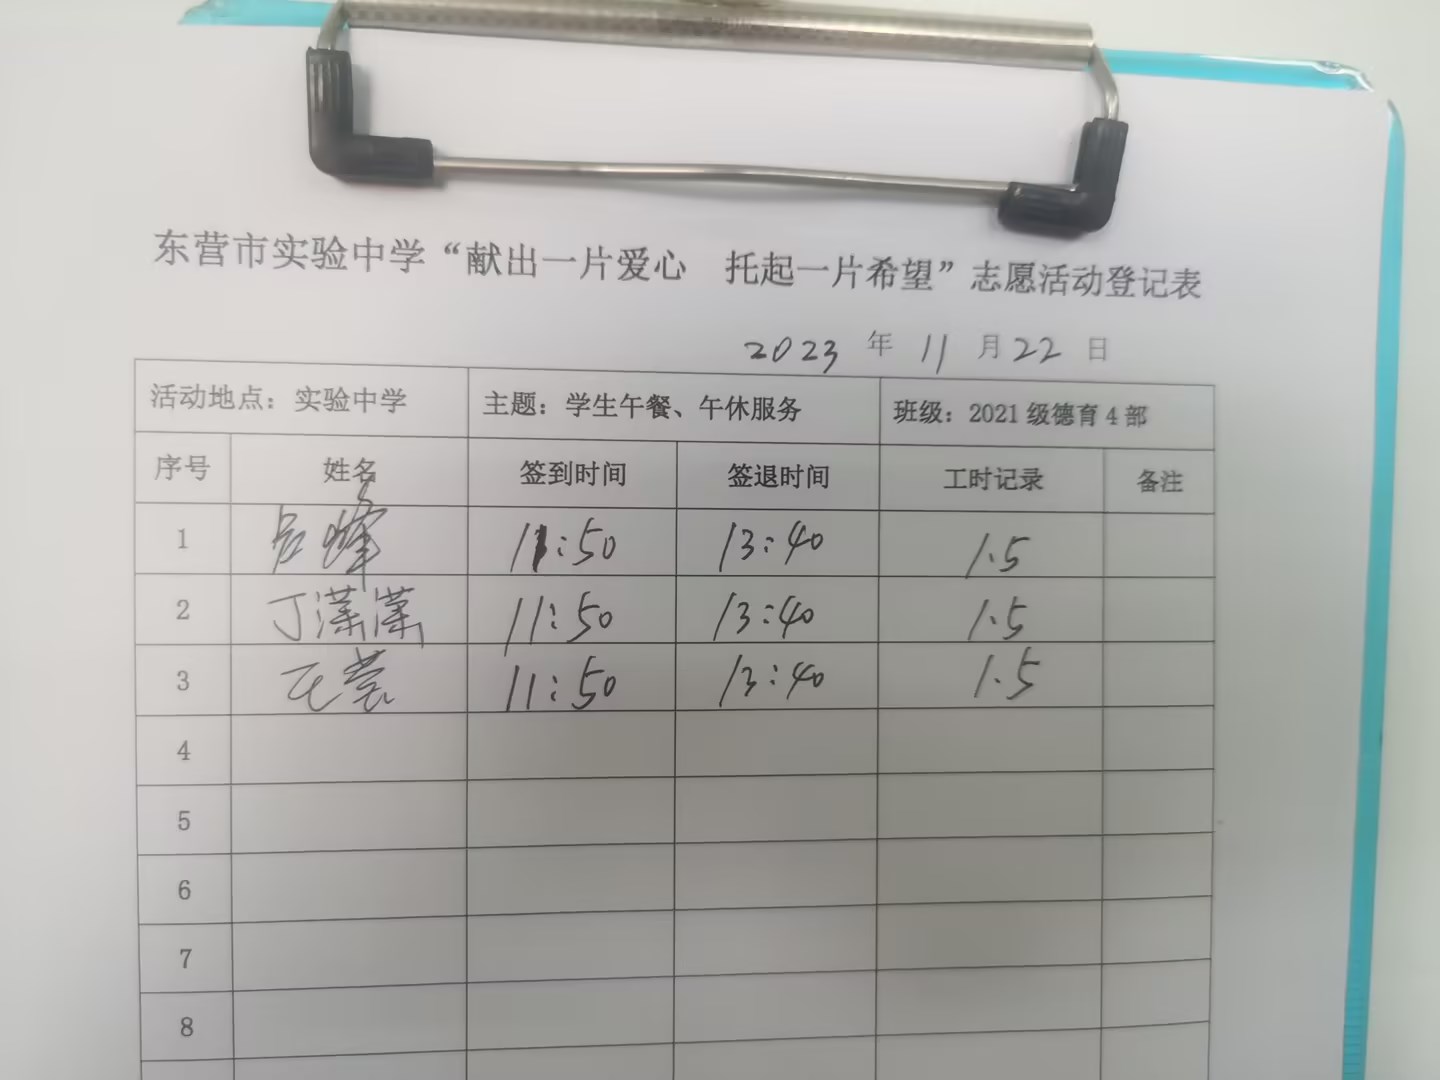 东营市实验中学“献出一片爱心 托起一片希望”志愿活动登记表
2023 年 11 月 22 日
活动地点：实验中学 主题：学生午餐、午休服务 班级：2021 级德育 4 部
序号 姓名 签到时间 签退时间 工时记录 备注
1 吕峰 11:50 13:40 1.5
2 丁潇潇 11:50 13:40 1.5
3 11:50 13:40 1.5
4
5
6
7
8